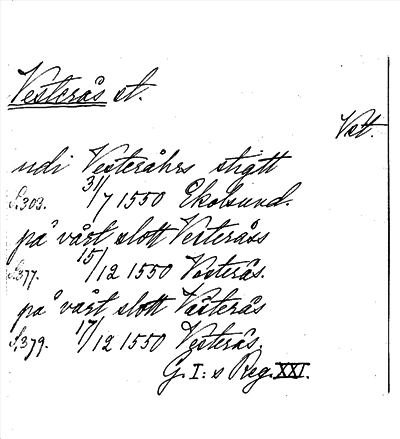 Vesterås st.
Vst.
udi Vesteråhrs stigtt
S.303. 31/7 1550 Ekolsund.
på vårt slott Vesteråss
S.377. 15/12 1550 Vesterås.
på vårt slott Västerås
S.379. 17/12 1550 Vesterås.
G. I:s Reg. XXI.